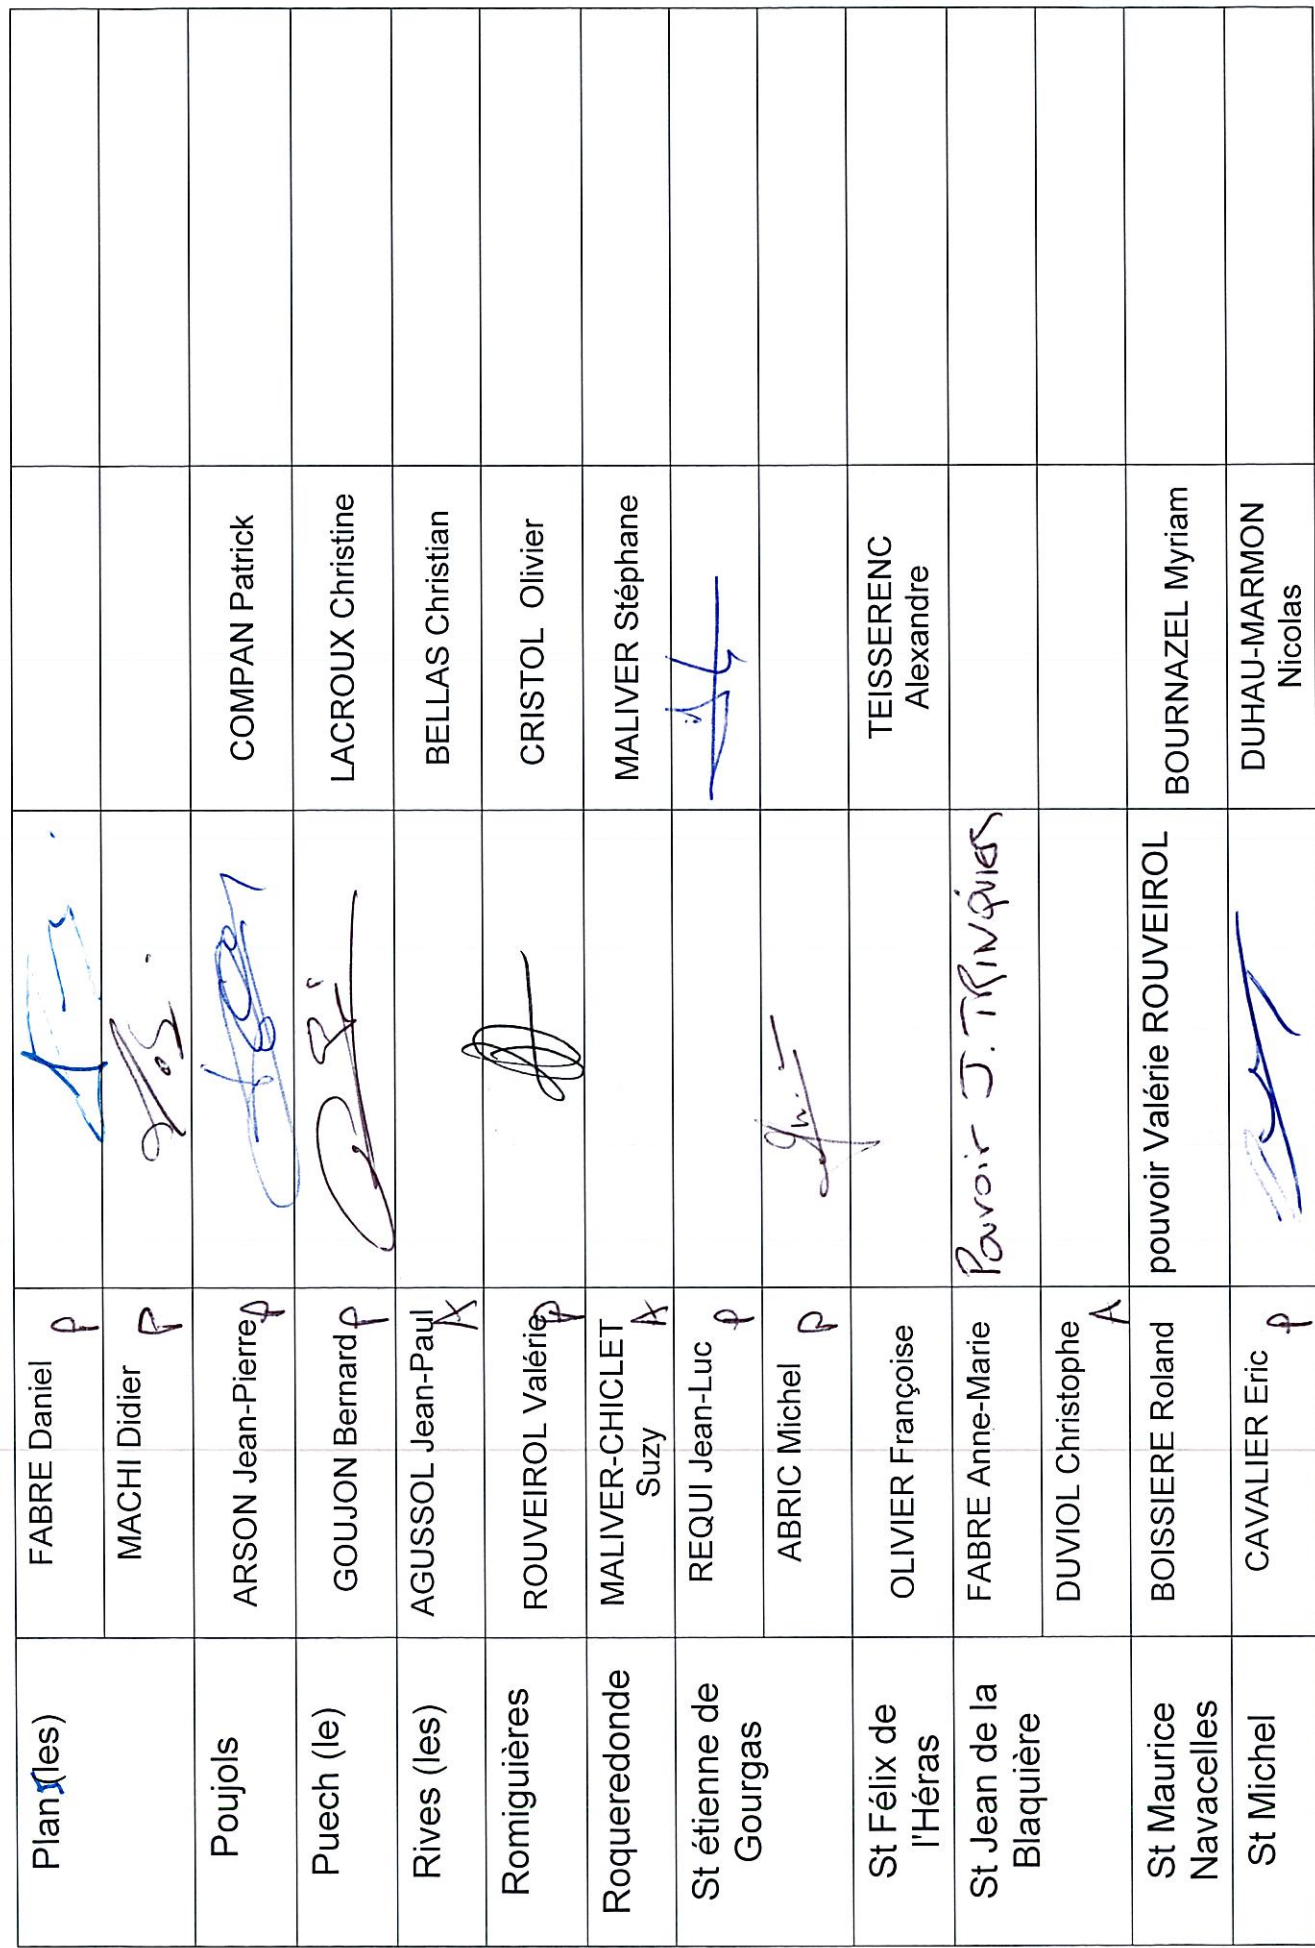 Plans(les)
FABRE Daniel
P
MACHI Didier
P
Poujols
ARSON Jean-Pierre
P
COMPAN Patrick
Puech (le)
GOUJON Bernard
P
LACROUX Christine
Rives (les)
AGUSSOL Jean-Paul
A
BELLAS Christian
Romiguières
ROUVEIROL Valérie
P
CRISTOL Olivier
Roqueredonde
MALIVER-CHICLET
Suzy
A
MALIVER Stéphane
St étienne de
Gourgas
REQUI Jean-Luc
P
ABRIC Michel
P
St Félix de
l'Héras
OLIVIER Françoise
TEISSERENC
Alexandre
St Jean de la
Blaquière
FABRE Anne-Marie
Pouvoir J. TRINQUIER
DUVIOL Christophe
A
St Maurice
Navacelles
BOISSIERE Roland
pouvoir Valérie ROUVEIROL
BOURNAZEL Myriam
St Michel
CAVALIER Eric
P
DUHAU-MARMON
Nicolas